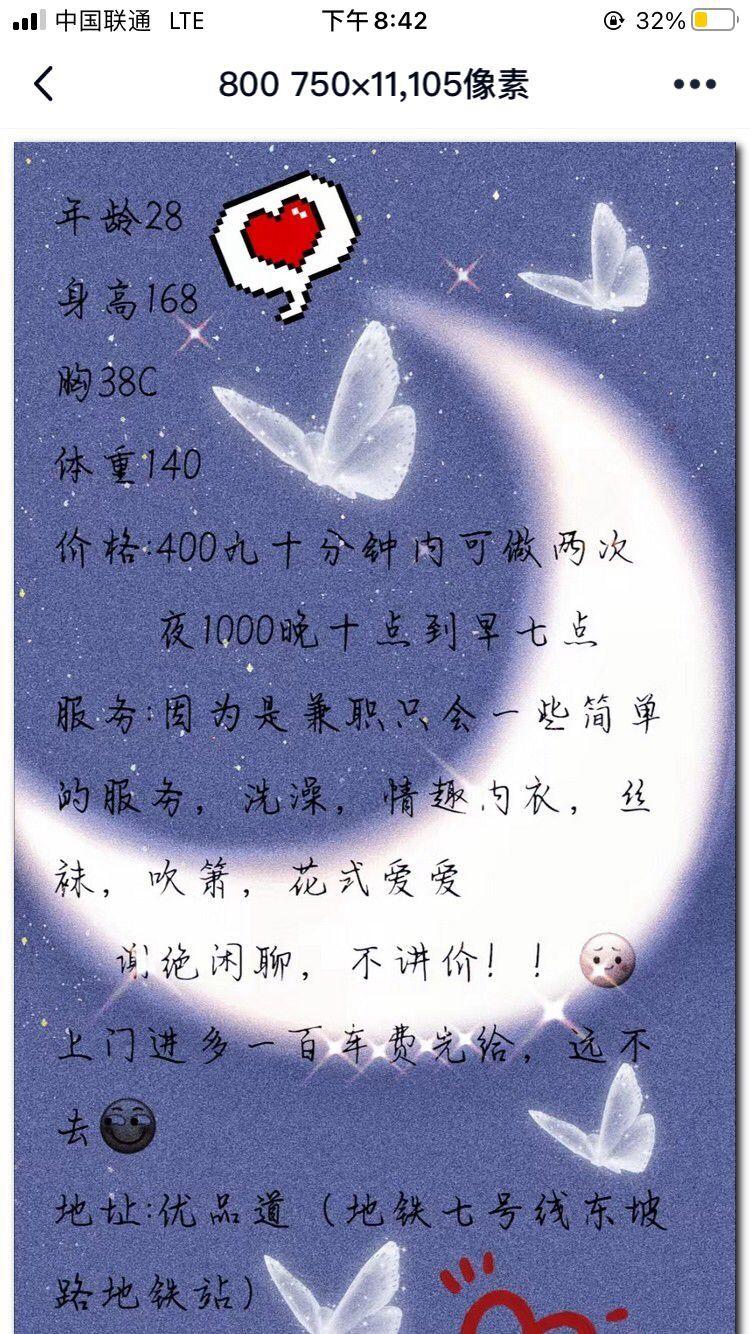 中国联通 LTE 下午8:42 32%
800 750×11,105像素
年龄28
身高168
胸38C
体重140
价格:400九十分钟内可做两次
夜1000晚十点到早七点
服务:因为是兼职只会一些简单
的服务，洗澡，情趣内衣，丝
袜，吹箫，花式爱爱
谢绝闲聊，不讲价！！
上门进多一百车费先给，远不
去
地址:优品道（地铁七号线东坡
路地铁站）